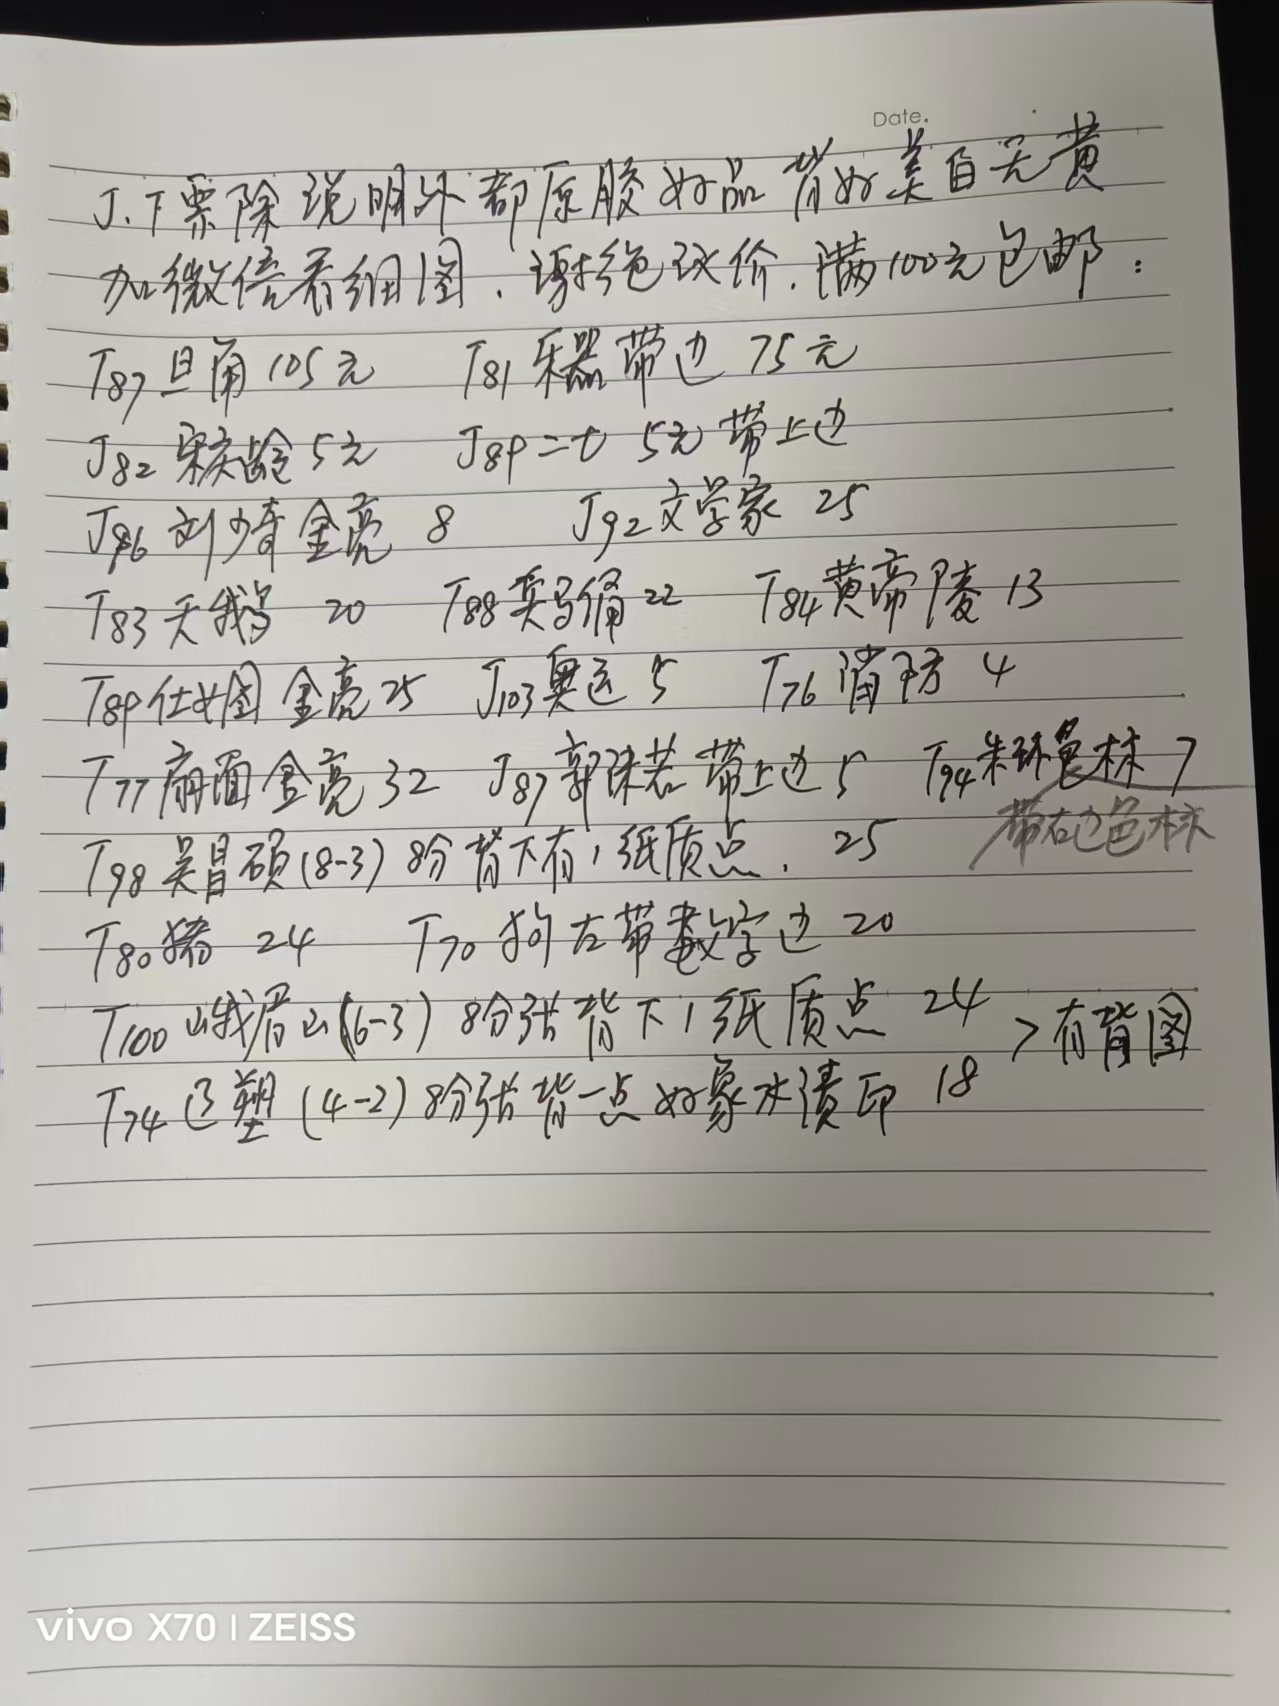 Date.
J.T票除说明外都原胶好品背好美白无黄
加微信看细图.谢绝议价.满100元包邮:
T87旦角105元 T81乐器带边75元
J82宋庆龄5元 J89二七5元带上边
J96刘少奇金亮8 J92文学家25
T83天鹅20 T88奚马俑22 T84黄帝陵13
T89仕女图金亮25 J103奥运5 T76消防4
T77扇面金亮32 J87郭沫若带上边5 T94朱环色标7
带右边色标
T98吴昌硕(8-3)8分背下有1纸质点.25
T80猪24 T70狗左带数字边20
T100峨眉山(6-3)8分张背下1纸质点24
>有背图
T74辽塑(4-2)8分张背一点好象水渍印18
vivo X70 | ZEISS